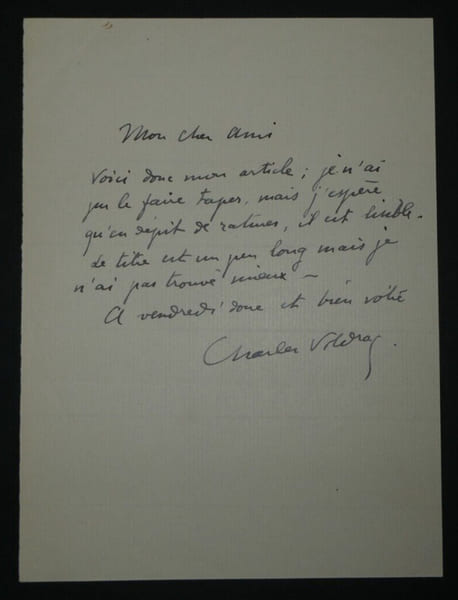 Mon cher ami
Voici donc mon article ; je n'ai
pu le faire taper, mais j'espère
qu'en dépit de ratures, il est lisible.
Le titre est un peu long mais je
n'ai pas trouvé mieux –
A vendredi donc et bien vôtre
Charles Vildrac.